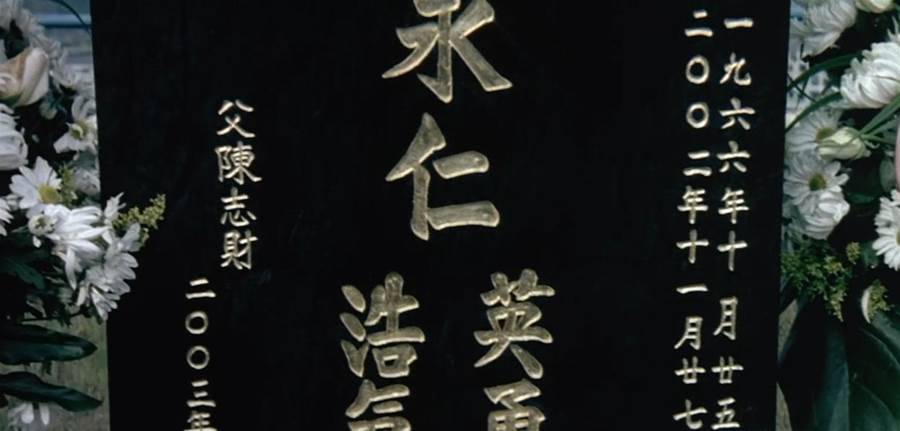 一九六六年十月廿五
二〇〇二年十一月廿七
永仁
英勇
浩
父陳志財
二〇〇三年